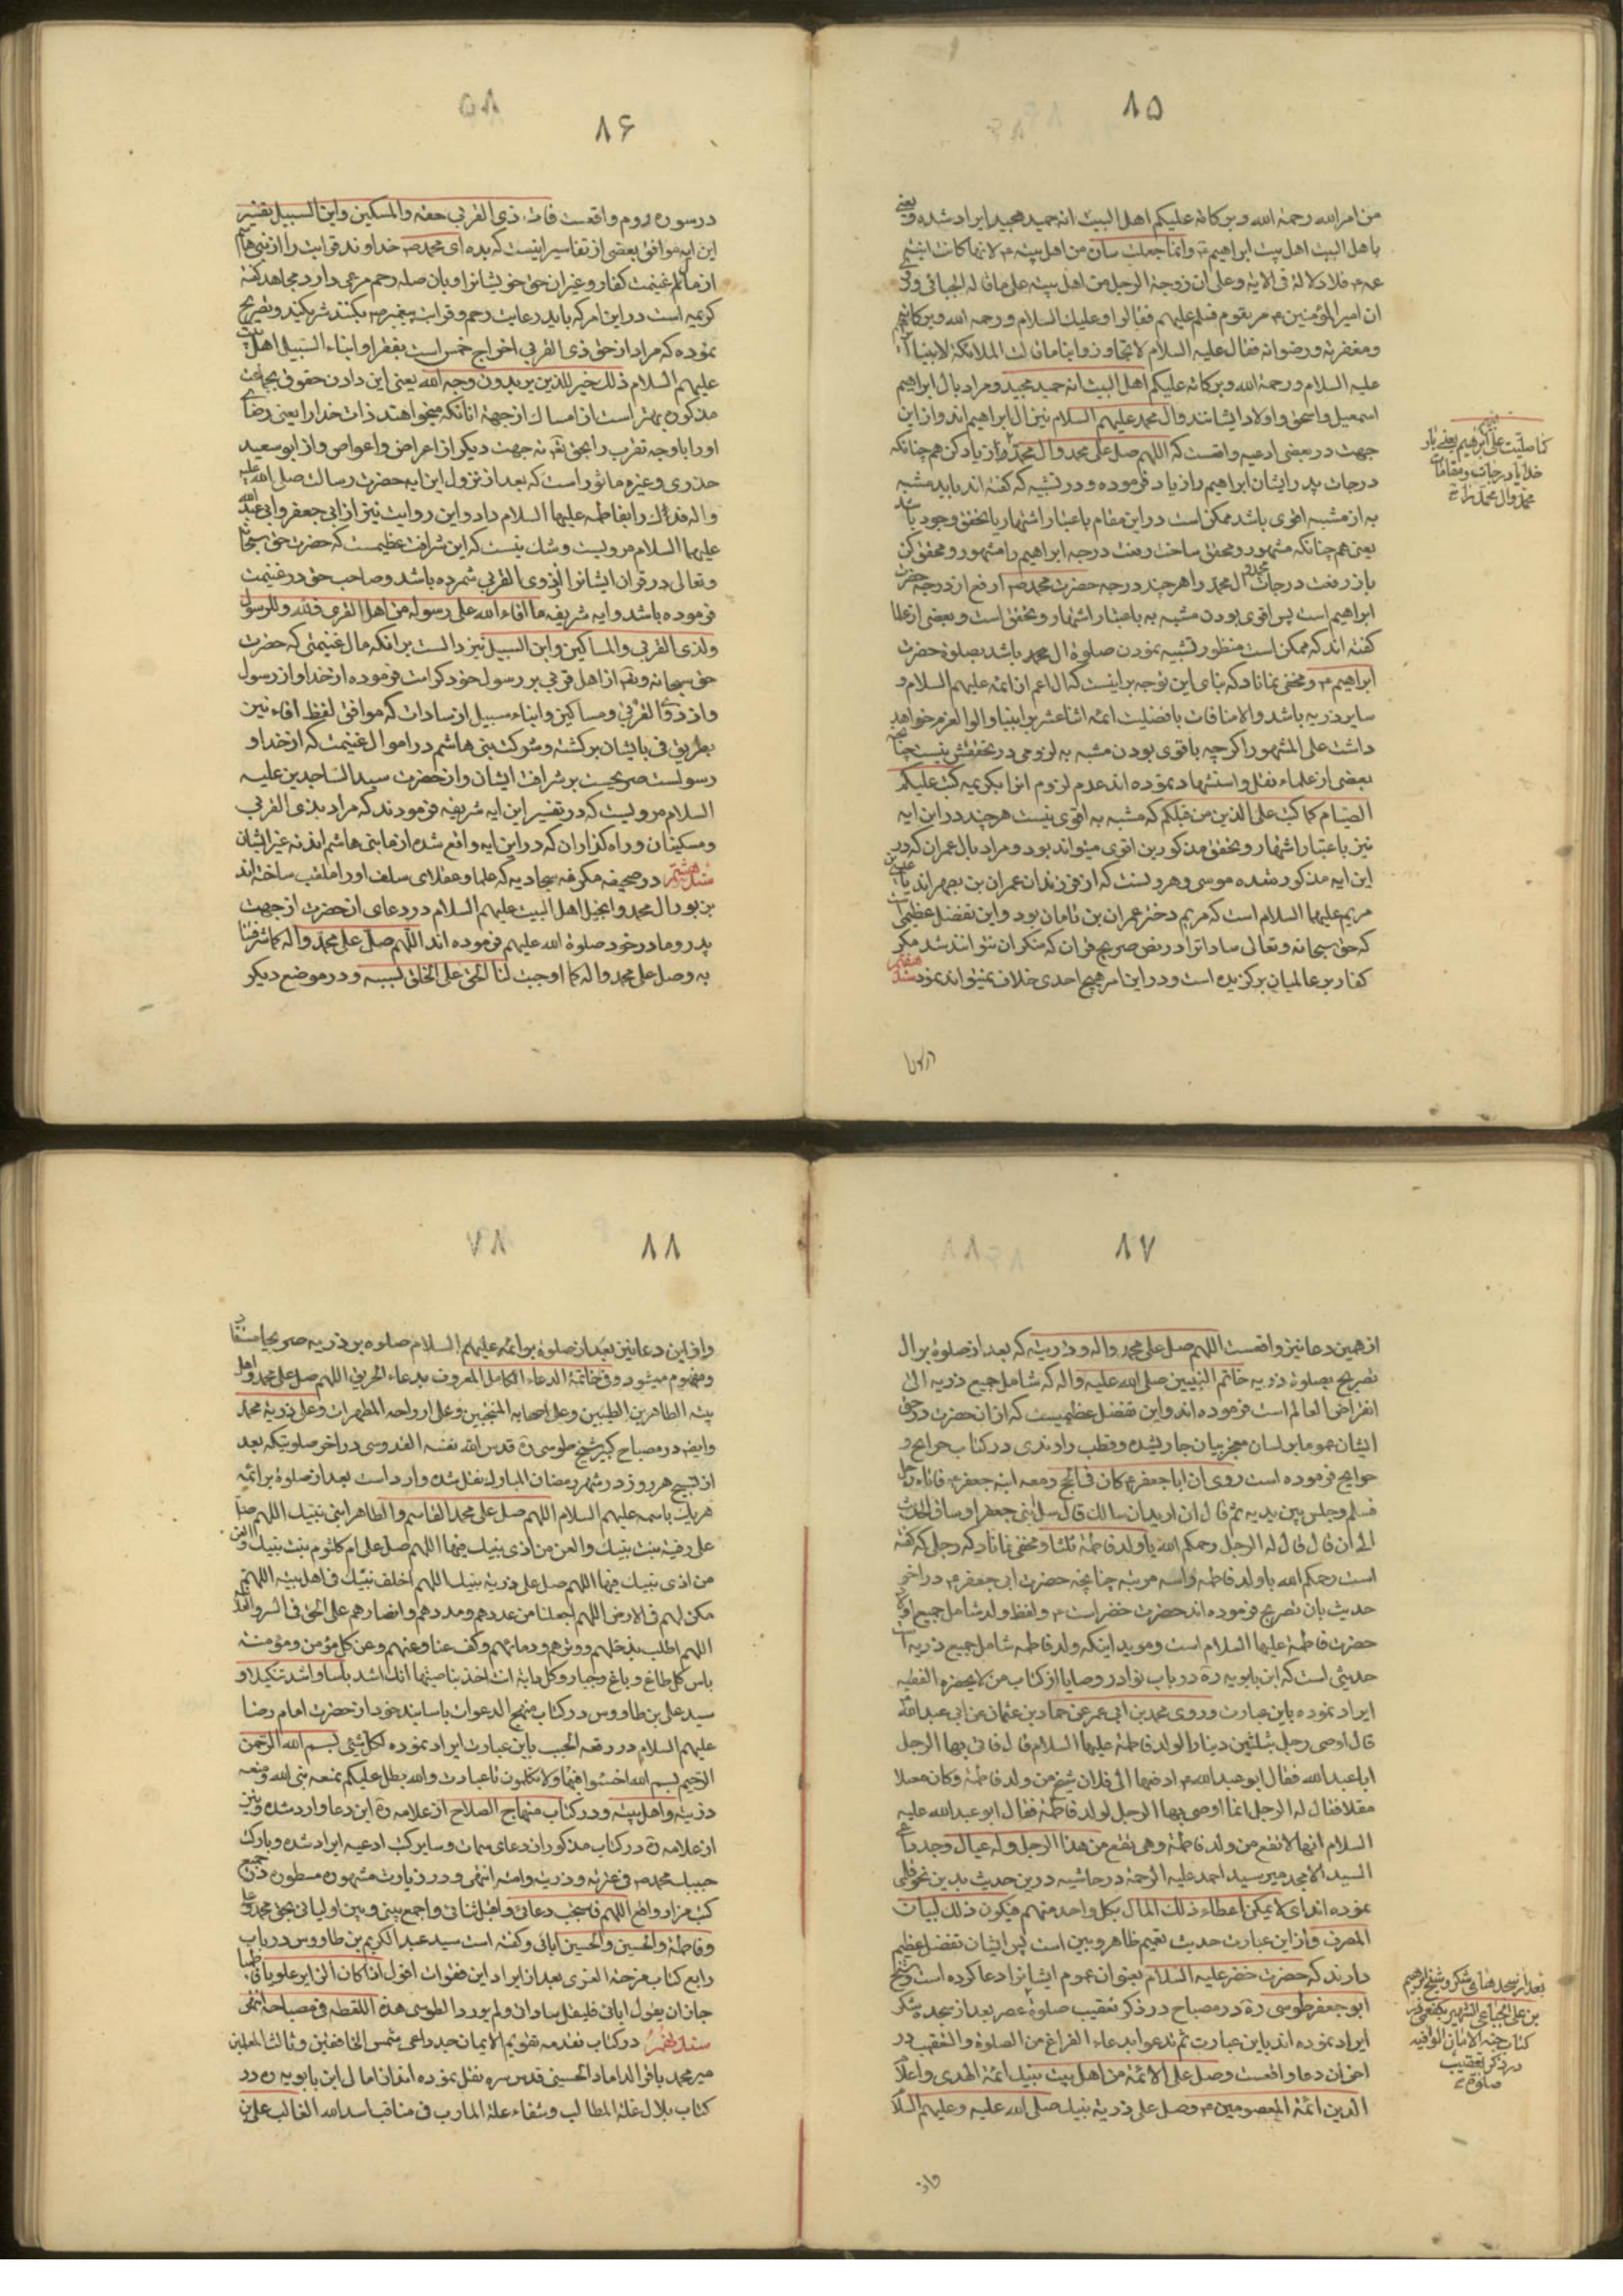 ۸۵
من امر الله رحمة الله وبركاته عليكم اهل البيت انه حميد مجيد ايراد شده و يعنى
باهل البيت اهل بيت ابراهيم ع وانما جعلت ساره من اهل بيته ع لانها كانت ابنة عم
عه ع فلا دلالة فى الاية وعلى ان زوجة الرجل من اهل بيته على ما قاله الجبائى وفى
ان امير المؤمنين ع مر بقوم فسلم عليهم فقالوا وعليك السلام ورحمة الله وبركاته
ومغفرته ورضوانه فقال عليه السلام لا تجاوزوا بنا ما قالت الملائكة لابينا
عليه السلام ورحمة الله وبركاته عليكم اهل البيت انه حميد مجيد ومراد بال ابراهيم
اسمعيل واسحق واولاد ايشانند وال محمد عليهم السلام نيز ال ابراهيم اند وازاين
جهت در بعضى ادعيه واقعست كه اللهم صل على محمد وال محمد و زياد كن هم چنانكه
درجات پدر ايشان ابراهيم را زياد فرموده و در تشبيه كه گفته اند بايد مشبه
به از مشبه اقوى باشد ممكن است در اين مقام باعتبار اشتهار يا تحقق وجود باشد
يعنى هم چنانكه مشهور و محقق ساخت رفعت درجه ابراهيم را مشهور و محقق كن
باز رفعت درجات محمد و ال محمد را هر چند درجه حضرت محمد ص ارفع از درجه حضرت
ابراهيم است پس اقوى بودن مشبه به باعتبار اشتهار و تحقق است و بعضى از علما
گفته اند كه ممكن است منظور تشبيه نمودن صلوة ال محمد باشد بصلوة حضرت
ابراهيم ع و مخفى نماناد كه بناى اين توجيه بر اينست كه ال اعم از ائمه عليهم السلام و
ساير ذريه باشد والا منافات با فضليت ائمه اثنا عشر بر انبيا و الوالعزم خواهد
داشت على المشهور اگرچه باقوى بودن مشبه به لزومى در تحققش نيست چنانچه
بعضى از علماء نقل و استشهاد نموده اند عدم لزوم انرا بكريمه كتب عليكم
الصيام كما كتب على الذين من قبلكم كه مشبه به اقوى نيست هرچند در اين ايه
نيز باعتبار اشتهار و تحقق مذكورين اقوى ميتواند بود و مراد بال عمران كه در
اين ايه مذكور شده موسى و هرونست كه از فرزندان عمران بن يصهر اند يا عيسى بن
مريم عليها السلام است كه مريم دختر عمران بن ماثان بود و اين تفضل عظيمى است
كه حق سبحانه و تعالى ساداترا در نص صريح قران كه منكر ان نتوانند شد مگر
كفار بر عالميان برگزيده است و در اين امر هيچ احدى خلاف نميتواند نمود سند هفتم
كما صليت على ابراهيم يعنى بار
خدايا درجات و مقامات
محمد وال محمد را
در سوره
۸۶
۵۸
در سوره روم واقعست فات ذى القربى حقه والمسكين وابن السبيل تفسير
اين ايه موافق بعضى از تفاسير اينست كه بده اى محمد ص خداوند قرابت را از بنى هاشم
از مال غنيمت كفار و غير ان حق خويشانرا و بان صله رحم مرعى دار و مجاهد گفته
كريمه است در اين امر كه بايد رعايت رحم و قرابت پيغمبر ص بكنند
نموده كه مراد از حق ذى القربى اخراج خمس است بفقرا و ابناء السبيل اهل بيت
عليهم السلام ذلك خير للذين يريدون وجه الله يعنى اين دادن حقوق بجماعت
مذكوره بهتر است از امساك از جهة انانكه ميخواهند ذات خدا را يعنى رضاى
او را يا وجه تقرب را بحق تعالى نه جهت ديگر از اعراض و اعواض و از ابو سعيد
خدرى و غيره ماثور است كه بعد از نزول اين ايه حضرت رسالت صلى الله عليه
واله فدك را بفاطمه عليها السلام داد و اين روايت نيز از ابى جعفر و ابى عبد الله
عليهما السلام مرويست و شك نيست كه اين شرافت عظيمست كه حضرت حق سبحانه
و تعالى در قران ايشانرا ذوى القربى شمرده باشد و صاحب حق در غنيمت
فرموده باشد و ايه شريفه ما افاء الله على رسوله من اهل القرى فلله وللرسول
ولذى القربى والمساكين وابن السبيل نيز دالست بر انكه مال غنيمتى كه حضرت
حق سبحانه و تعالى از اهل قرى بر رسول خود كرامت فرموده از خدا و از رسول
و از ذوى القربى و مساكين و ابناء سبيل از سادات كه موافق لفظ افاء نيز
بطريق فى بايشان برگشته و شركت بنى هاشم در اموال غنيمت كه از خدا و
رسولست صريحيست بر شرافت ايشان و از حضرت سيد الساجدين عليه
السلام مرويست كه در تفسير اين ايه شريفه فرمودند كه مراد بذى القربى
و مسكينان و راه گذاران كه در اين ايه واقع شده از ما بنى هاشم اند نه غير ايشان
سند هشتم در صحيفه مكرمه سجاديه كه علما و عقلاى سلف او را ملقب ساخته اند
بزبور ال محمد و انجيل اهل البيت عليهم السلام در دعاى انحضرت از جهت
پدر و مادر خود صلوة الله عليهم فرموده اند اللهم صل على محمد واله كما شرفتنا
به وصل على محمد واله كما اوجبت لنا الحق على الخلق بسببه و در موضع ديگر
۸۷
از همين دعا نيز واقعست اللهم صل على محمد واله وذريته كه بعد از صلوة بر ال
تصريح بصلوة ذريه خاتم النبيين صلى الله عليه واله كه شامل جميع ذريه الى
انقراض العالم است فرموده اند و اين تفضل عظيميست كه از انحضرت در حق
ايشان عموما بر لسان معجز بيان جارى شده و قطب راوندى در كتاب جرايح و
خرايج فرموده است روى ان ابا جعفر ع كان فى الحج ومعه ابنه جعفر ع فاتاه رجل
فسلم وجلس بين يديه ثم قال انى اريد ان اسالك قال سل ابنى جعفرا وساق الحديث
الى ان قال قال له الرجل رحمكم الله يا ولد فاطمة ثلثا و مخفى نماناد كه رجلى كه گفته
است رحمكم الله يا ولد فاطمه و اسه مرتبه چنانچه حضرت ابى جعفر ع در اخر
حديث بان تصريح فرموده اند حضرت خضر است ع و لفظ ولد شامل جميع اولاد
حضرت فاطمة عليها السلام است و مويد اينكه ولد فاطمه شامل جميع ذريه است
حديثى است كه ابن بابويه ره در باب نوادر وصايا از كتاب من لا يحضره الفقيه
ايراد نموده باين عبارت وروى محمد بن ابى عمير عن حماد بن عثمان عن ابى عبد الله
قال اوصى رجل بثلثين دينارا لولد فاطمة عليها السلام قال فاتى بها الرجل
ابا عبد الله فقال ابو عبد الله ع ادفعها الى فلان شيخ من ولد فاطمة وكان معيلا
مقلا فقال له الرجل انما اوصى بها الرجل لولد فاطمة فقال ابو عبد الله عليه
السلام انها لا تقع من ولد فاطمة وهى تقع من هذا الرجل وله عيال و جد
السيد الامجد مير سيد احمد عليه الرحمة در حاشيه در ين حديث بدين نحو
نموده اند اى لا يمكن اعطاء ذلك المال بكل واحد منهم فيكون ذلك لبيان
المصرف و از اين عبارت حديث تعميم ظاهر و بين است پس ايشان تفضل عظيم
دارند كه حضرت خضر عليه السلام بعنوان عموم ايشانرا دعا كرده است و شيخ
ابو جعفر طوسى ره در مصباح در ذكر تعقيب صلوة عصر بعد از سجده شكر
ايراد نموده اند باين عبارت ثم تدعوا بدعاء الفراغ من الصلوة والتعقيب در
اخر ان دعا واقعست وصل على الائمة من اهل بيت نبيك ائمة الهدى واعلام
الدين ائمة المعصومين ع وصل على ذرية نبيك صلى الله عليه وعليهم السلام
بن على الجباعى الشهير بكفعمى در
كتاب جنة الامان الواقيه
در ذكر تعقيب
صلوة
و از
۸۸
۸۷
و از اين دعا نيز بعد از صلوة بر ائمه عليهم السلام صلوه بر ذريه صريحا مستفاد
و مفهوم ميشود وفى خاتمة الدعاء الكامل المعروف بدعاء الحريق اللهم صل على محمد واهل
بيته الطاهرين الطيبين وعلى اصحابه المنتجبين وعلى ازواجه المطهرات وعلى ذرية محمد
وايضا در مصباح كبير شيخ طوسى ره قدس الله نفسه القدوسى در اخر صلوتيكه بعد
از تسبيح هر روز در شهر رمضان المبارك نقل شده وارد است بعد از صلوة بر ائمه
هر يك باسمه عليهم السلام اللهم صل على محمد القاسم والطاهر ابنى نبيك اللهم صل
على رقية بنت نبيك والعن من اذى نبيك فيها اللهم صل على ام كلثوم بنت نبيك والعن
من اذى نبيك فيها اللهم صل على ذرية نبيك اللهم اخلف نبيك فى اهل بيته اللهم
مكن لهم فى الارض اللهم اجعلنا من عددهم ومددهم وانصارهم على الحق فى السر والعلانية
اللهم اطلب بذحلهم ووترهم ودمائهم وكف عنا وعنهم وعن كل مؤمن ومؤمنة
باس كل طاغ وباغ وجبار وكل دابة انت اخذ بناصيتها انك اشد باسا واشد تنكيلا و
سيد على بن طاووس در كتاب مهج الدعوات باسانيد خود از حضرت امام رضا
عليهم السلام در رقعه الجيب باين عبارت ايراد نموده لكل شئ بسم الله الرحمن
الرحيم بسم الله اخسئوا فيها ولا تكلمون
ذريته واهل بيته و در كتاب منهاج الصلاح از علامه ره اين دعا وارد شده و نيز
از علامه ره در كتاب مذكور از دعاى سمات و ساير كتب ادعيه ايراد شده وبارك
حبيبك محمد ص فى عترته وذريته وامته انتهى و در زيارت مشهوره مسطوره در جميع
كتب مزار واقع اللهم فاستجب دعائى واقبل ثنائى واجمع بينى وبين اوليائى بحق محمد وعلى
وفاطمة والحسن والحسين ابائى و گفته است سيد عبد الكريم بن طاووس در باب
رابع كتاب فرحة الغرى بعد از ايراد اين فقرات اقول اذا كان الزاير علويا فاطميا
جاز ان يقول ابائى فليقل سادات ولم يورد الطوسى هذه اللفظه فى مصباحه انتهى
سند نهم در كتاب مقدمه تقويم الايمان جد داعى شمس الخافقين وثالث المعلمين
مير محمد باقر الداماد الحسينى قدس سره نقل نموده اند از امالى ابن بابويه ره در
كتاب بلال غلة المطالب وشفاء علة المارب فى مناقب اسد الله الغالب على بن